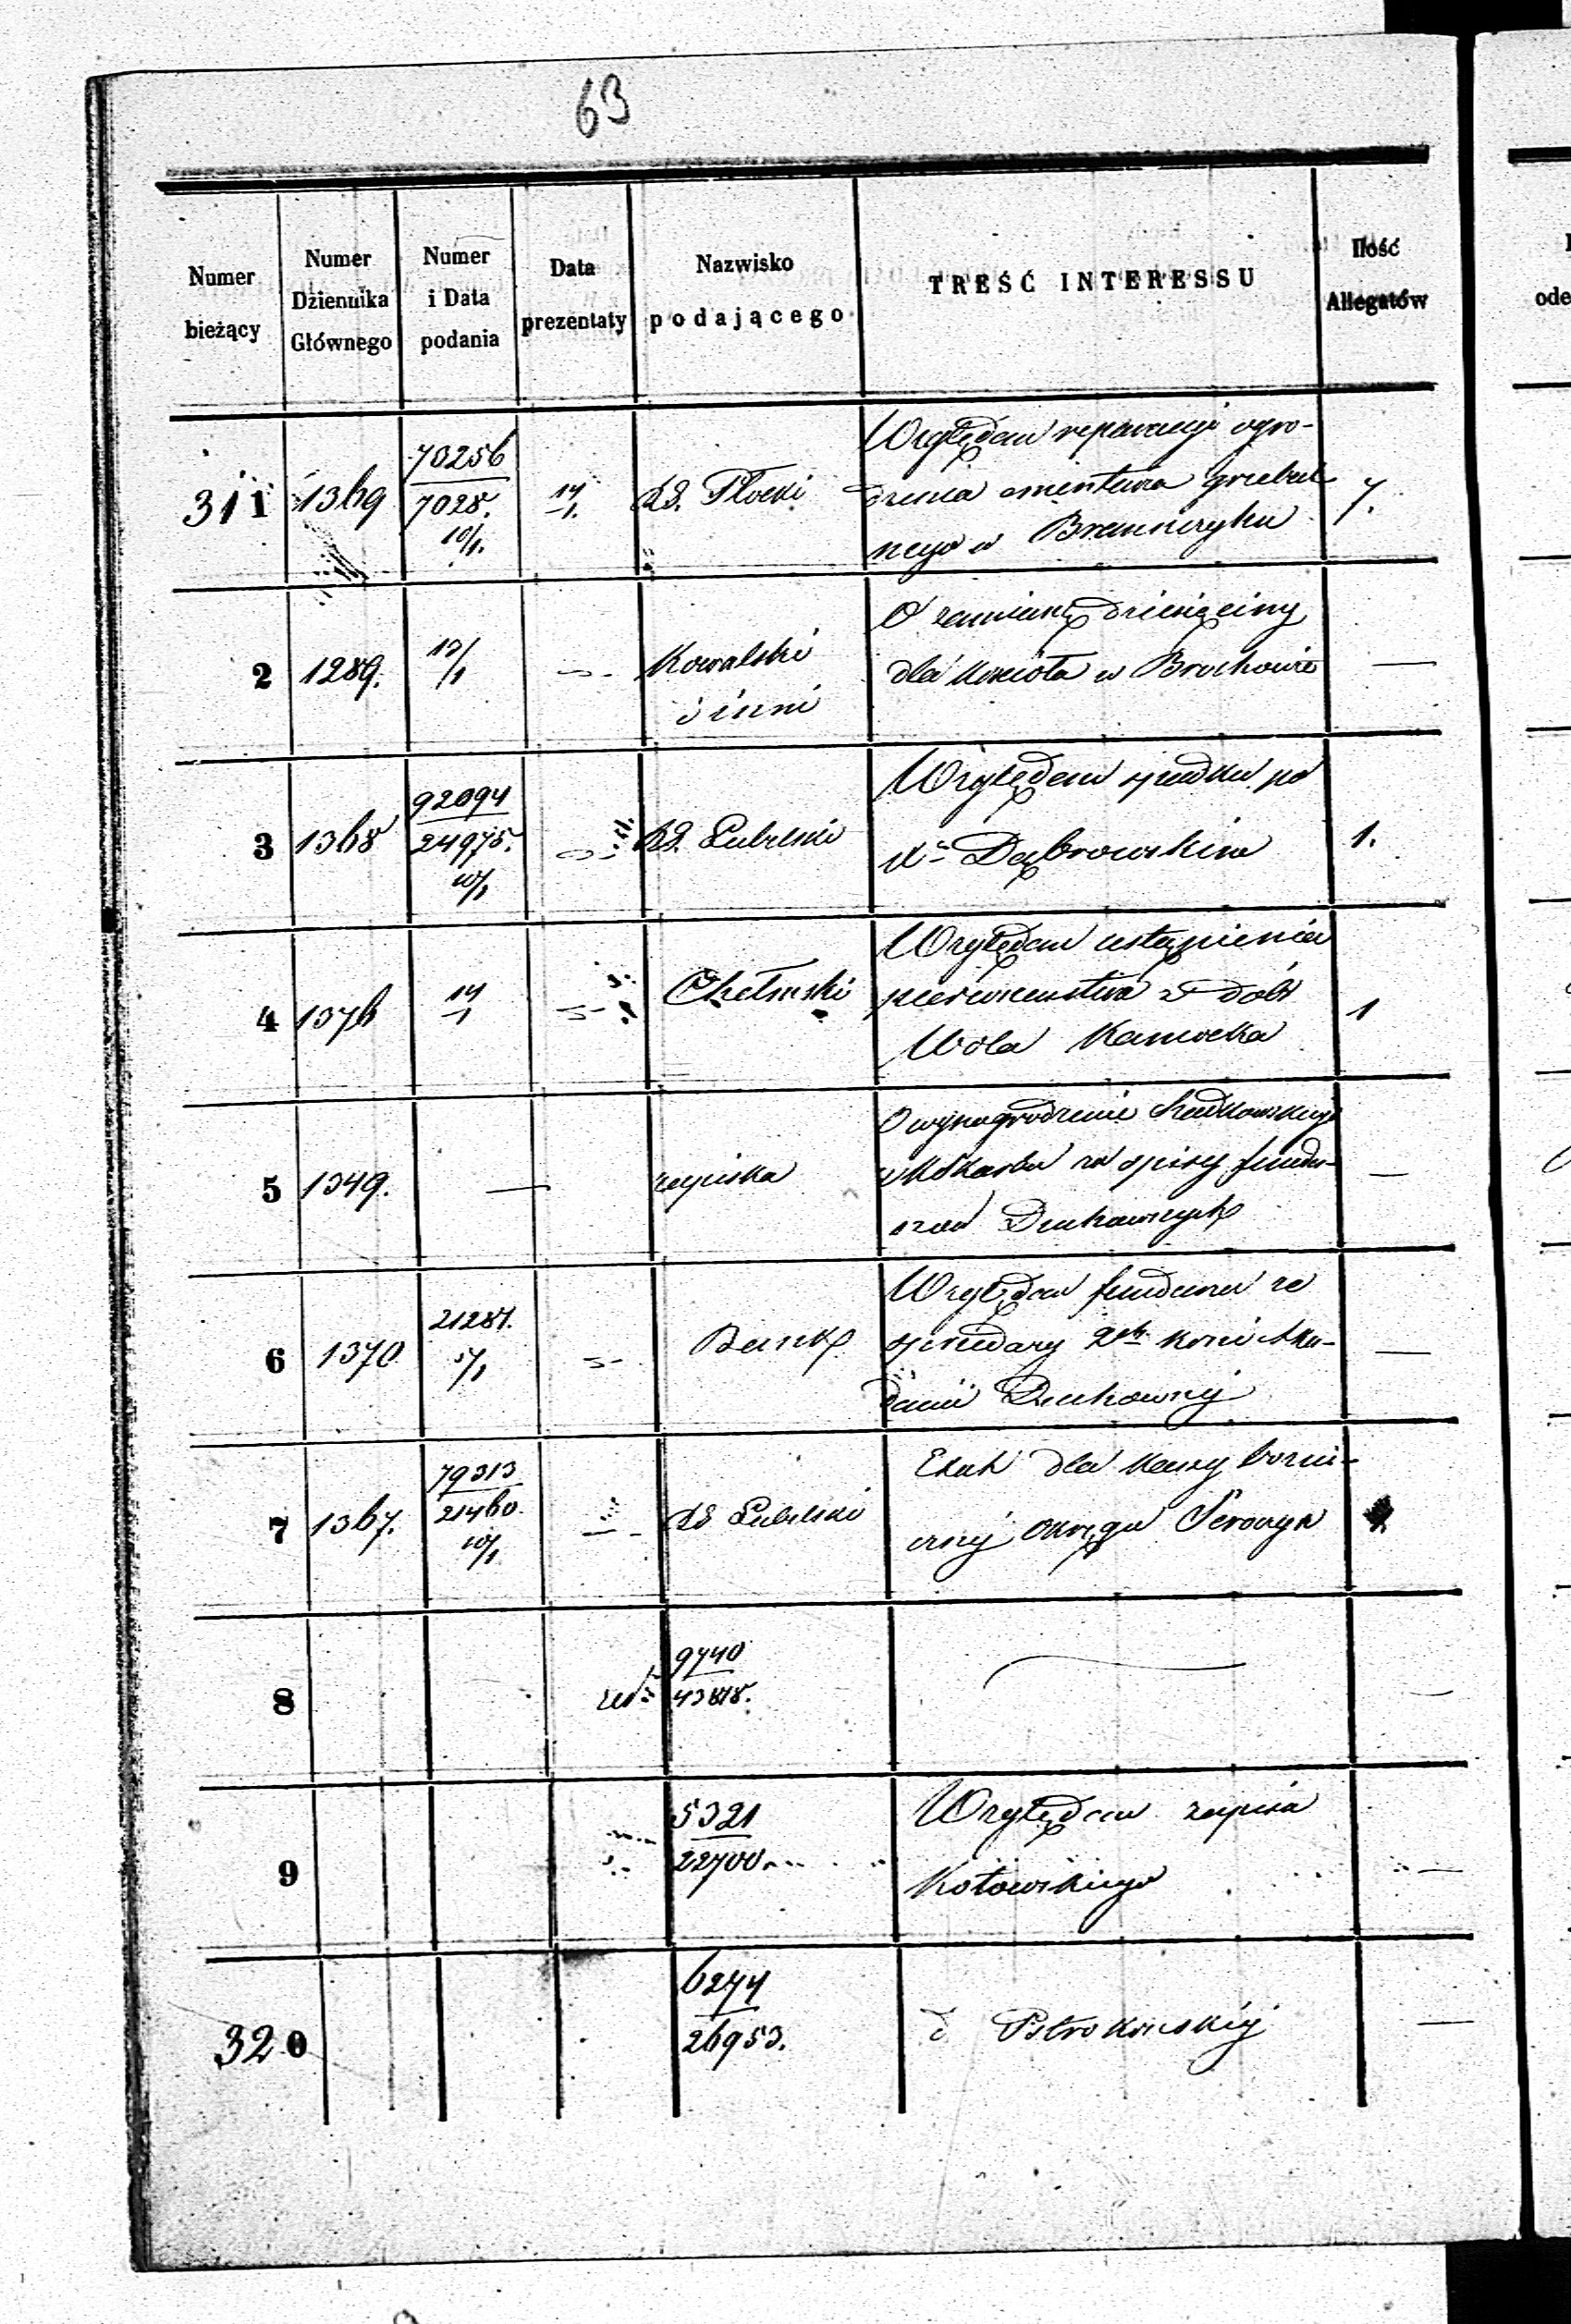 63
Numer bieżący
Numer Dziennika Głównego
Numer i Data podania
Data prezentaty
Nazwisko podającego
TREŚĆ INTERESSU
Ilość Allegatów
311 1369 70256 7028. 10/1. 14/1. RG. Płocki
Względem reparacyi ogro-
dzenia cmentarza grzebal
nego w 7.
2 1289. 13/1 Kowalski
i inni
O zamianę dziesięciny
dla kościoła w Brochowie —
3 1368 92094 24975. 10/1 RG. Lubelski
Względem spadku po
Xs Dąbrowskim 1.
4 1376 14/1 Chełmski
Względem ustąpienia
pierwszeństwa z dóbr
Wola 1
5 1349. — zapiska
O wynagrodzenie
za spisy fundu-
szów Duchownych —
6 1370 21287. 5/1 Bank
Względem funduszu ze
sprzedaży
Duchownej —
7 1367. 79313 21460. 10/1 RG Lubelski
Etat dla kassy
okręgu
8 9740 43818. —
9 5321 22700
Względem zapisu
Kotowskiego —
320 6274 26953.
d Pstrokońskiej —